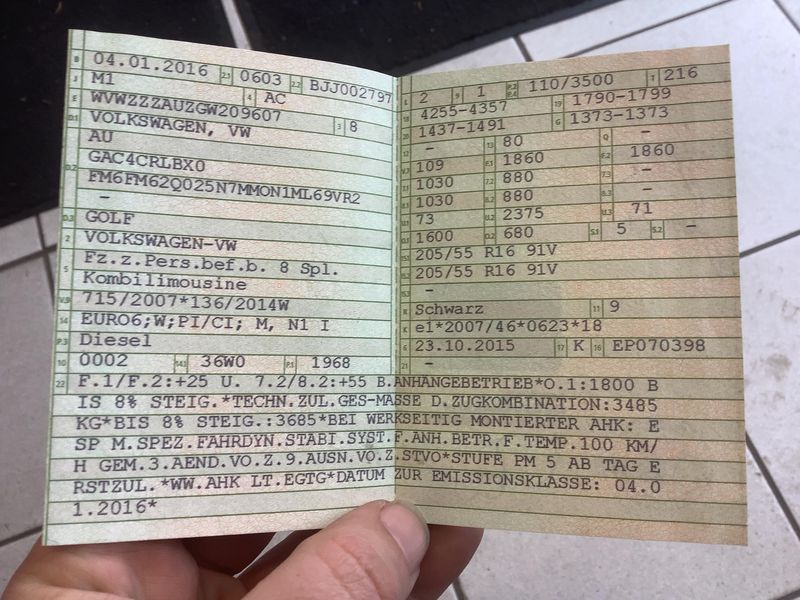 B 04.01.2016 2.1 0603 2.2 BJJ002797
J M1 4 AC
E WVWZZZAUZGW209607 3 8
D.1 VOLKSWAGEN, VW
AU
D.2 GAC4CRLBX0
FM6FM62Q025N7MMON1ML69VR2
–
D.3 GOLF
2 VOLKSWAGEN-VW
5 Fz.z.Pers.bef.b. 8 Spl.
Kombilimousine
V.9 715/2007*136/2014W
14 EURO6;W;PI/CI; M, N1 I
P.3 Diesel
10 0002 14.1 36W0 P.1 1968
L 2 9 1 P.2 P.4 110/3500 T 216
18 4255-4357 19 1790-1799
20 1437-1491 G 1373-1373
12 – 13 80 Q –
V.7 109 F.1 1860 F.2 1860
7.1 1030 7.2 880 7.3 –
8.1 1030 8.2 880 8.3 –
U.1 73 U.2 2375 U.3 71
O.1 1600 O.2 680 S.1 5 S.2 –
15.1 205/55 R16 91V
15.2 205/55 R16 91V
15.3 –
R Schwarz 11 9
K e1*2007/46*0623*18
6 23.10.2015 17 K 16 EP070398
21 –
22 F.1/F.2:+25 U. 7.2/8.2:+55 B.ANHANGEBETRIEB*O.1:1800 B
IS 8% STEIG.*TECHN.ZUL.GES-MASSE D.ZUGKOMBINATION:3485
KG*BIS 8% STEIG.:3685*BEI WERKSEITIG MONTIERTER AHK: E
SP M.SPEZ.FAHRDYN.STABI.SYST.F.ANH.BETR.F.TEMP.100 KM/
H GEM.3.AEND.VO.Z.9.AUSN.VO.Z.STVO*STUFE PM 5 AB TAG E
RSTZUL.*WW.AHK LT.EGTG*DATUM ZUR EMISSIONSKLASSE: 04.0
1.2016*